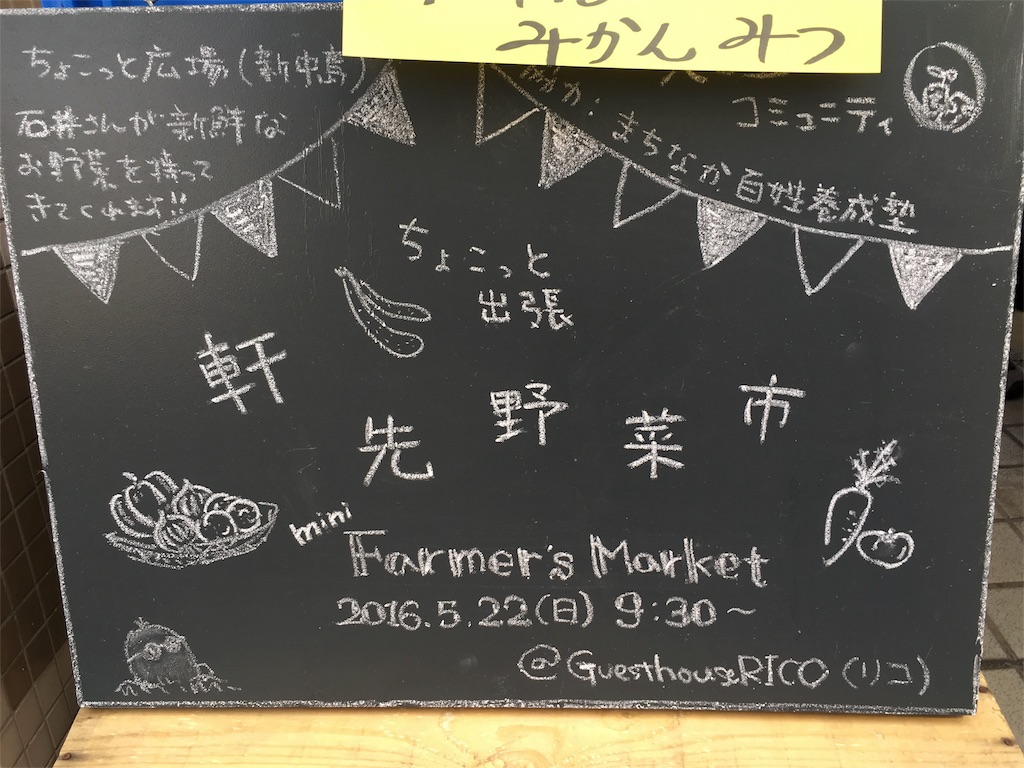 みかん みつ
ちょこっと広場(新中島)
石井さんが新鮮な
お野菜を持って
きてくれます!!
コミュニティ
まちなか百姓養成塾
ちょこっと
出張
軒先野菜市
mini
Farmer's Market
2016.5.22(日) 9:30〜
@GuesthouseRICO (リコ)